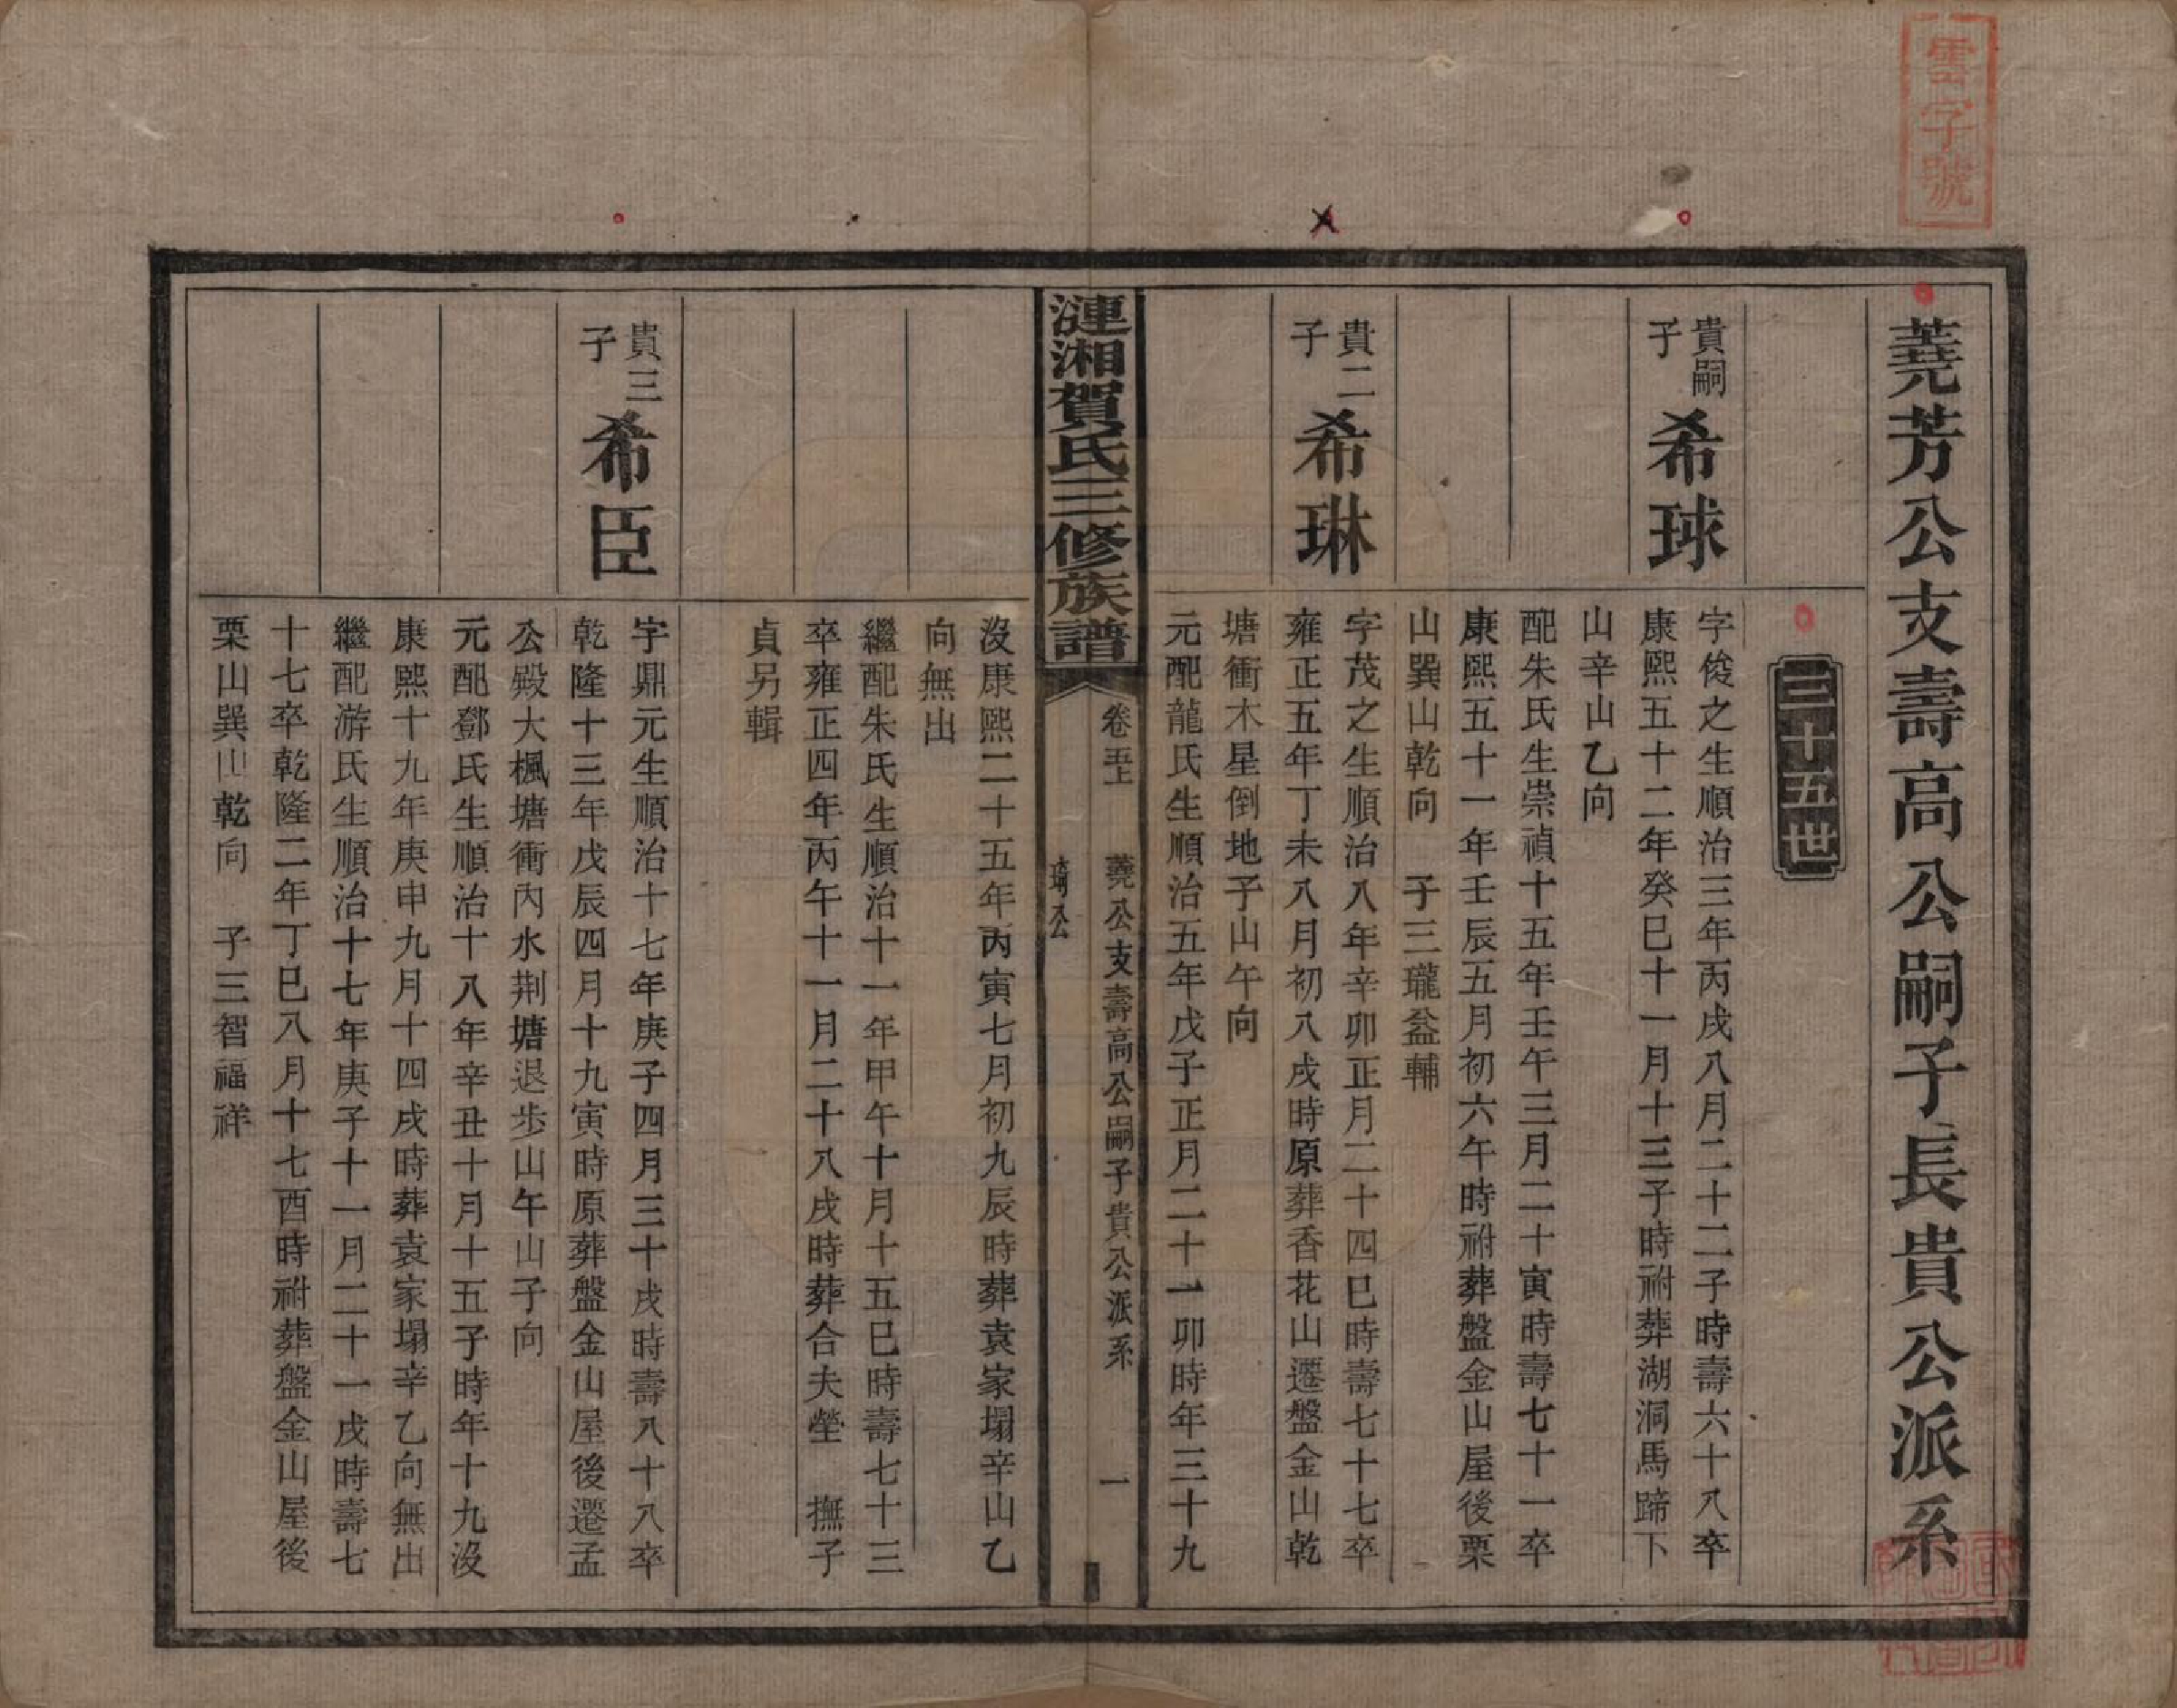 雲字號
蕘芳公支壽高公嗣子長貴公派系
三十五世
貴嗣子 希球
字俊之生順治三年丙戌八月二十二子時壽六十八卒
康熙五十二年癸巳十一月十三子時祔葬湖洞馬蹄下
山辛山乙向
配朱氏生崇禎十五年壬午三月二十寅時壽七十一卒
康熙五十一年壬辰五月初六午時祔葬盤金山屋後栗
山巽山乾向 子三瓏益輔
貴二子 希琳
字茂之生順治八年辛卯正月二十四巳時壽七十七卒
雍正五年丁未八月初八戌時原葬香花山遷盤金山乾
塘衝木星倒地子山午向
元配龍氏生順治五年戊子正月二十一卯時年三十九
漣湘賀氏三修族譜
卷五上 蕘公支壽高公嗣子貴公派系 一
琦公
沒康熙二十五年丙寅七月初九辰時葬袁家塌辛山乙
向無出
繼配朱氏生順治十一年甲午十月十五巳時壽七十三
卒雍正四年丙午十一月二十八戌時葬合夫塋 撫子
貞另輯
貴三子 希臣
字鼎元生順治十七年庚子四月三十戌時壽八十八卒
乾隆十三年戊辰四月十九寅時原葬盤金山屋後遷孟
公殿大楓塘衝內水荆塘退步山午山子向
元配鄧氏生順治十八年辛丑十月十五子時年十九沒
康熙十九年庚申九月十四戌時葬袁家塌辛乙向無出
繼配游氏生順治十七年庚子十一月二十一戌時壽七
十七卒乾隆二年丁巳八月十七酉時祔葬盤金山屋後
栗山巽山乾向 子三智福祥